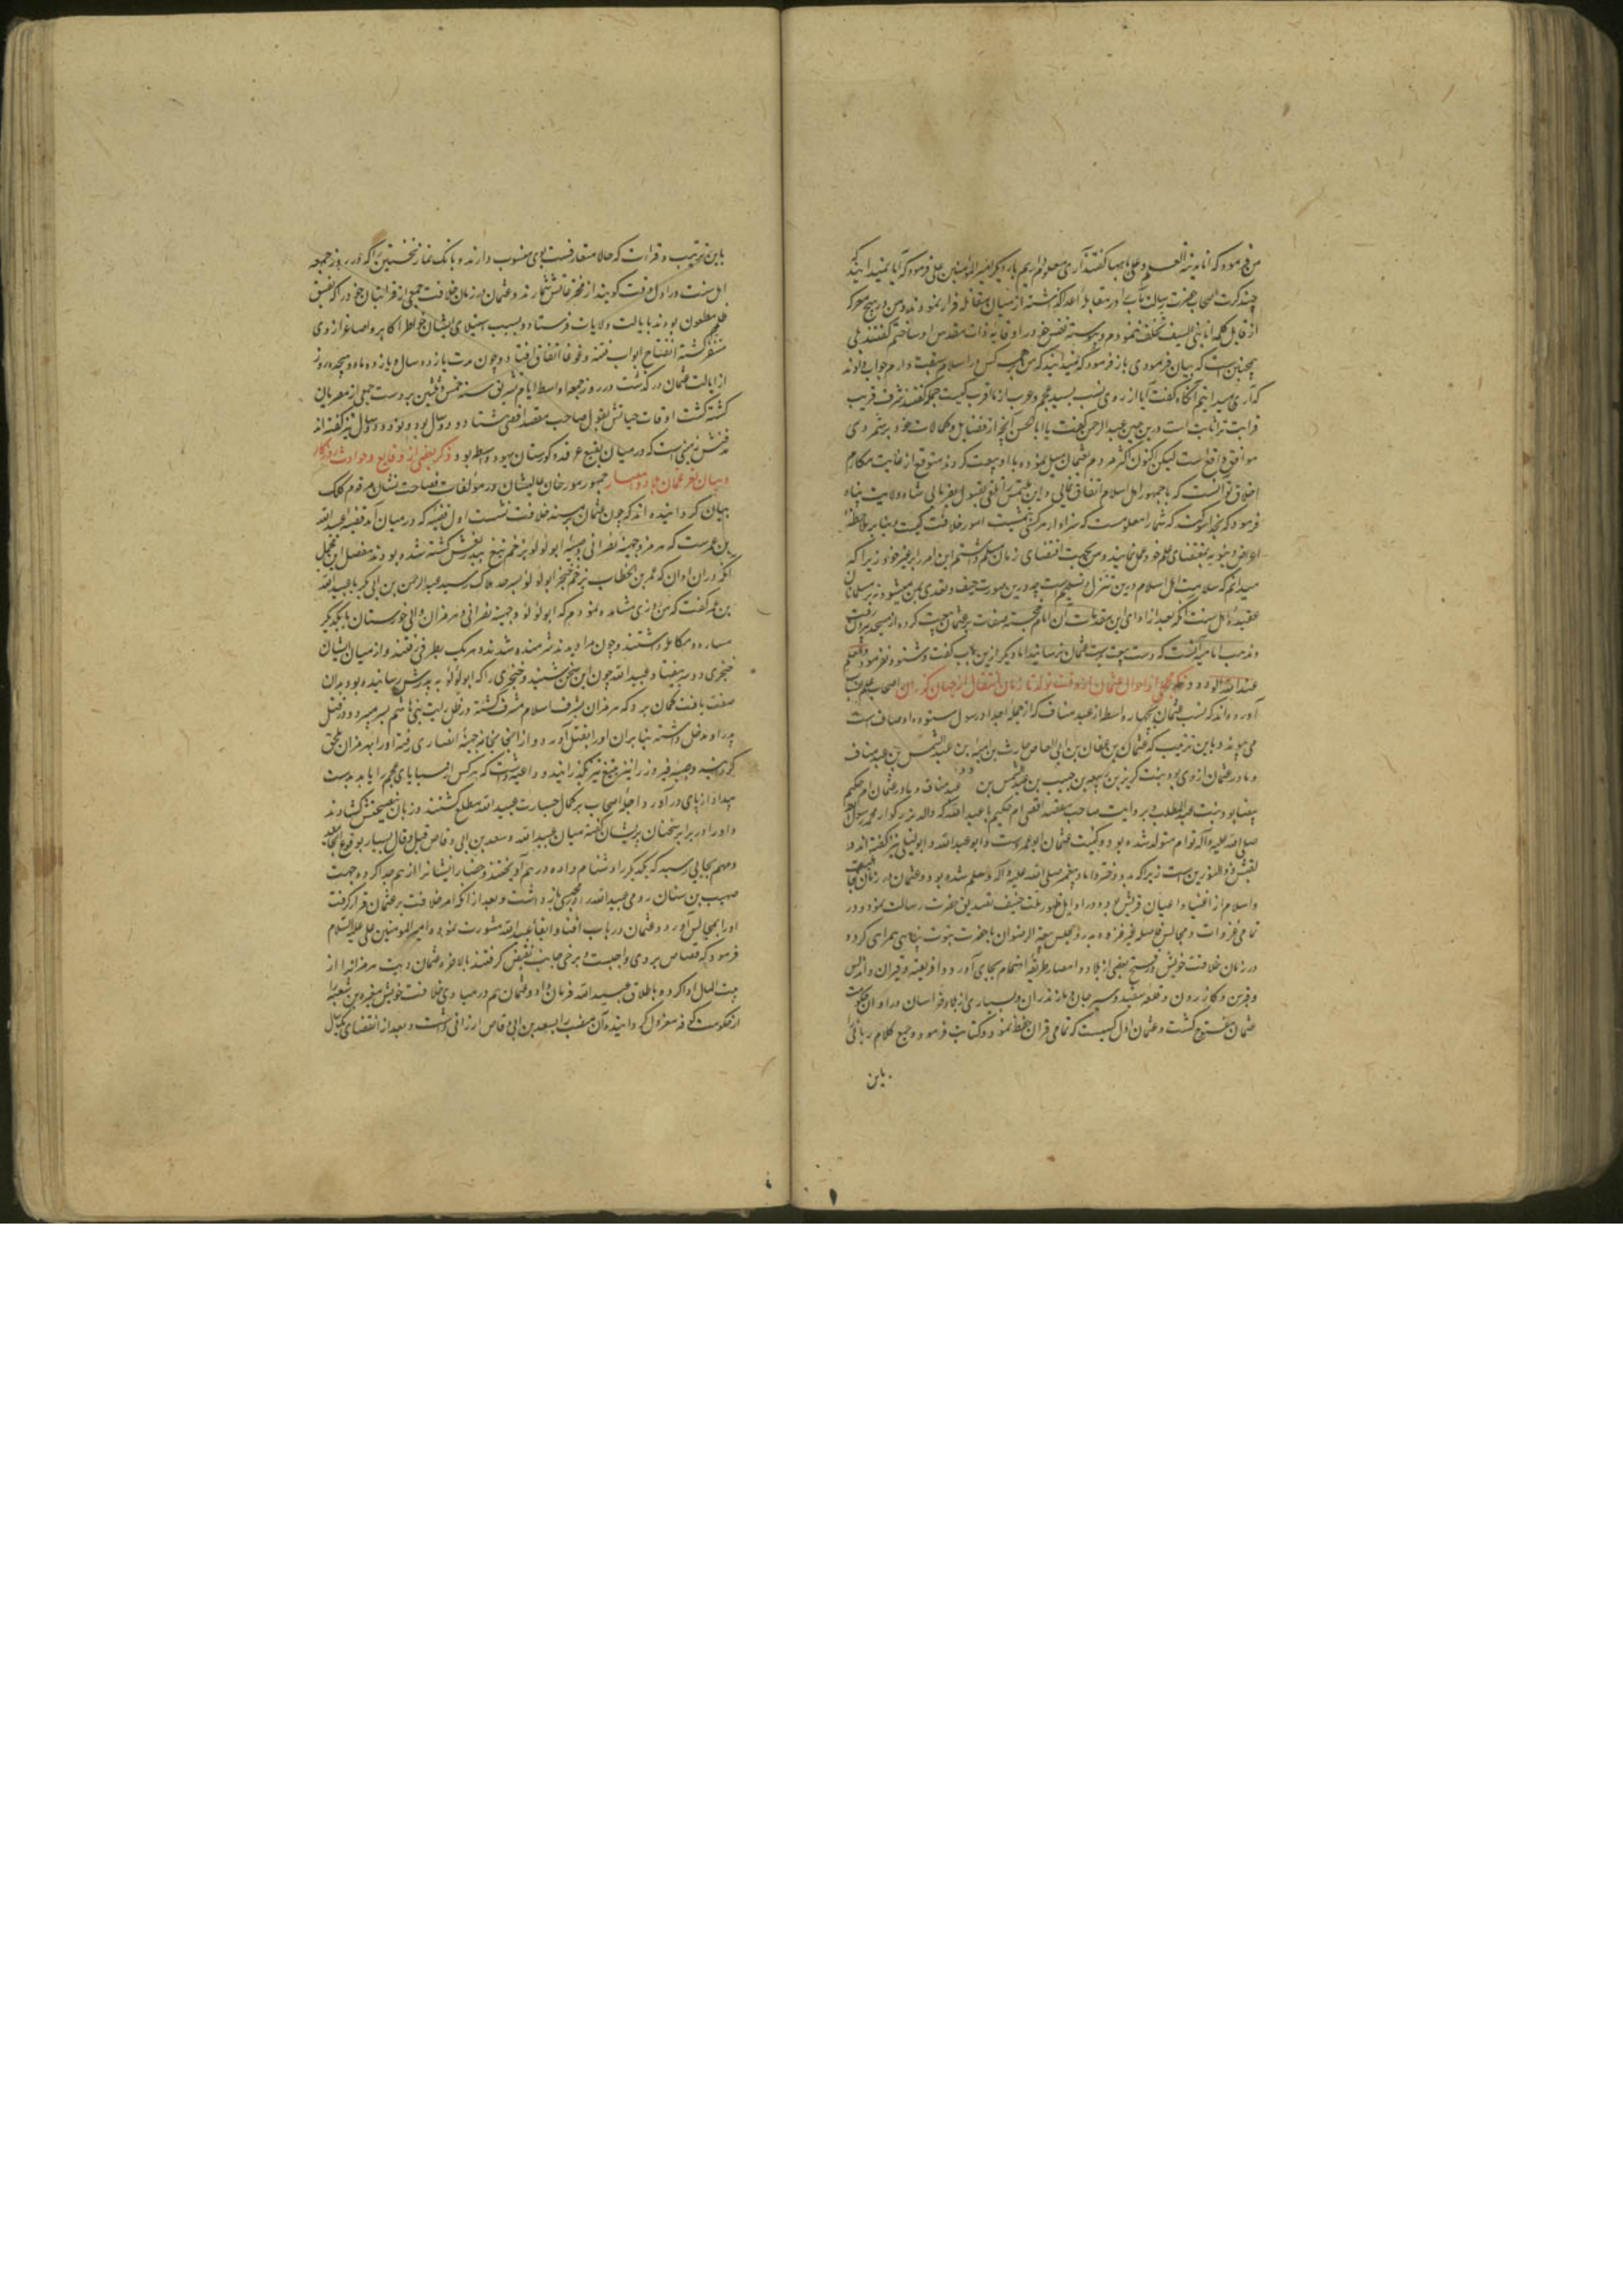 من فرموده که انا مدینة العلم و علی بابها گفتند آری معلوم داریم بار دیگر امیر المؤمنین علی فرمود که آیا نمیدانید که
چند کرت اصحاب حضرت رسالت مآب در مقابله اعدا گذاشته از میان مقاتله فرار نمودند و من در هیچ معرکه
از قابل کلمه انا نبی السیف تخلف ننمودم و پیوسته نفس خود را وقایه ذات مقدس او ساختم گفتند بلی
همچنین است که بیان فرمودی باز فرمود که نمیدانید که من بر همه کس در اسلام سبقت دارم جواب دادند
که آری میدانیم آنگاه گفت آیا از روی نسب بسید عجم و عرب از ما اقرب کیست جمله گفتند شرف قریب
قرابت ترا ثابت است درین حین عبد الرحمن گفت یا ابا الحسن آنچه از فضایل و کمالات خود بر شمردی
موافق واقعست لیکن اکنون اکثر مردم بعثمان میل نموده با او بیعت کردند متوقع از غایت مکارم
اخلاق تو آنست که با جمهور اهل اسلام اتفاق نمائی و این ملتمس را تلقی بقبول بفرمائی شاه ولایت پناه
فرمود که بخدا سوگند که شما را معلومست که سزاوار مرکز تمشیت امور خلافت کیست و بنا بر ملاحظه
اعراض دنیویه بمقتضای علم خود عمل نمی نمایید و من بحکمت اقتضای زمان مسلم داشتم این امر را بر غیر خود زیرا که
میدانم که سلامت اهل اسلام درین تنزل و تسلیم است چه درین صورت حیف و تعدی بمن میشود نه بر مسلمانان
عقیده اهل سنت آنکه بعد از ادای این مقدمات آن امام خجسته صفات بر عثمان بیعت کرده از مسجد بیرون رفت
و مذهب امامیه آنست که دست بیعت بدست عثمان نرسانید اما دیگر ازین باب گفت و شنود نفرمود و العلم
عند الله الودود ذکر مجملی از احوال عثمان از وقت تولد تا زمان انتقال از جهان گذران اصحاب علم نسب
آورده اند که نسب عثمان بچهار واسطه از عبد مناف که از جمله اجداد رسول ستوده اوصاف است
می پیوندد باین ترتیب که عثمان بن عفان بن ابی العاص بن امیة بن عبد الشمس بن عبد مناف
و مادر عثمان اروی بود بنت کریز بن ربیعة بن حبیب بن عبد شمس بن عبد مناف و مادر مادر عثمان ام حکیم
بیضا بود بنت عبد المطلب و بروایت صاحب مقصد اقصی ام حکیم با عبد الله که والد بزرگوار محمد رسول الله
صلی الله علیه و آله توام متولد شده بود و کنیت عثمان ابو عمرست و ابو عبد الله و ابو لیلی نیز گفته اند و
لقبش ذو النورین است زیرا که بدو دختر داماد پیغمبر صلی الله علیه و آله و سلم شده بود و عثمان در زمان جاهلیت
و اسلام از اغنیا و اعیان قریش بود و در اوایل ظهور ملت حنیف تصدیق حضرت رسالت نمود و در
تمامی غزوات و مجالس فاضله غیر غزوه بدر و مجلس بیعة الرضوان با حضرت نبوت پناهی همراهی کرد و
در زمان خلافت خویش در فتح بعضی از بلاد و امصار طریقه اهتمام بجای آورد و افریقیه و قیروان و اندلس
و قبرس و کازرون و قلعه سفید و سیرجان و مازندران و بسیاری از بلاد خراسان در اوان حکومت
عثمان مفتوح گشت و عثمان اول کسیست که تمامی قران حفظ نمود و کتابت فرمود و جمع کلام ربانی را
باین
باین ترتیب و قرات که حالا متعارفست بوی منسوب دارند و بانگ نماز نخستین را که در روز جمعه
اهل سنت در اول وقت گویند از مخترعاتش شمارند و عثمان در زمان خلافت جمعی از قرابتان خود را که بفسق
و ظلم مطعون بودند بایالت ولایات فرستاد و بسبب استیلای ایشان خواطر اکابر و اصاغر از وی
متنفر گشته انفتاح ابواب فتنه و غوغا اتفاق افتاد و چون مدت یازده سال و یازده ماه و هجده روز
از ایالت عثمان در گذشت در روز جمعه اواسط ایام تشریق سنه خمس و ثلثین بر دست جمعی از مصریان
کشته گشت اوقات حیاتش بقول صاحب مقصد اقصی هشتاد و دو سال بود و نود و دو سال نیز گفته اند
مدفنش زمینی است که در میان بقیع غرقد و گورستان یهود واسطه بود ذکر بعضی از وقایع و حوادث روزگار
و بیان لغزهای عثمان بلاد و امصار جمهور مورخان عالیشان در مولفات فصاحت نشان مرقوم کلک
بیان گردانیده اند که چون عثمان بر مسند خلافت نشست اول قضیه که در میان آمد قضیه عبید الله
بن عمرست که هرمز و جهینه نصرانی و دختر ابو لولو بزخم تیغ بیدریغش کشته شده بودند مفصل این مجمل
آنکه در ان اوان که عمر بن الخطاب بزخم خنجر ابو لولو بسرحد هلاک رسید عبد الرحمن بن ابی بکر با عبید الله
بن عمر گفت که من روزی مشاهده نمودم که ابو لولو و جهینه نصرانی و هرمزان والی خوزستان با یکدیگر
مساره و مکالمه داشتند و چون مرا دیدند شرمنده شدند و هر یک بطرفی رفتند و از میان ایشان
خنجری دو سر بیفتاد و عبید الله چون این سخن شنید و خنجری را که ابو لولو به پدرش رسانیده بود بدان
صفت یافت گمان برد که هرمزان بشرف اسلام مشرف گشته در ظل رایت بنی هاشم بسر میبرد و در قتل
پدر او مدخل داشته بنا بران او را بقتل آورد و از آنجا بخانه جهینه نصاری رفته او را بهرمزان ملحق
گردانید و جهینه فیروز را نیز بتیغ تیز بگذرانید و داعیه داشت که هر کس از سبایای عجم را یابد بدست
بیداد از پای در آورد و اجله اصحاب بر کمال جسارت عبید الله مطلع گشتند و زبان بنصیحتش گشادند
و او در برابر سخنان پریشان گفته میان عبید الله و سعد بن ابی وقاص قیل و قال بسیار بوقوع انجامید
و مهم بجایی رسید که یکدیگر را دشنام داده در هم آویختند و حضار ایشانرا از هم جدا کرده و جهت
صهیب بن سنان رومی عبید الله را محبوس باز داشت و بعد از آنکه امر خلافت بر عثمان قرار گرفت
او را بمجالس آورد و عثمان در باب افنا و ابقا عبید الله مشورت نمود و امیر المومنین علی علیه السلام
فرمود که قصاص بر وی واجبست و برخی جانب نقیض گرفتند بالاخره عثمان دیت هرمزانرا از
بیت المال ادا کرد و باطلاق عبید الله فرمان داد و عثمان هم در مبادی خلافت خویش مغیره بن شعبه را
از حکومت کوفه معزول گردانیده آن منصب را بسعد بن ابی وقاص ارزانی داشت و بعد از انقضای یکسال